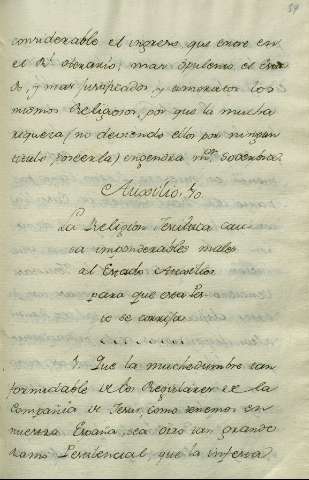 39
considerable el ingreso, que entre en
el Rl. herario; mas opulento el Esta
do, y mas justificados, y amoratos los
mismos Religiosos, por que la mucha
riqueza (no deviendo ellos por ningun
titulo, poseerla) engendra mor. Sobervia?
Auxilio, 70.
La Religion Jesuitica cau
sa imponderables males
al Estado: Auxilios
para que esta Pes
te se corrija.
1. Que la muchedumbre tan
formidable de los Regulares de la
Compañia de Jesus, como tenemos en
nuestra España, sea otro tan grande
ramo Pestilencial, que la infesta?